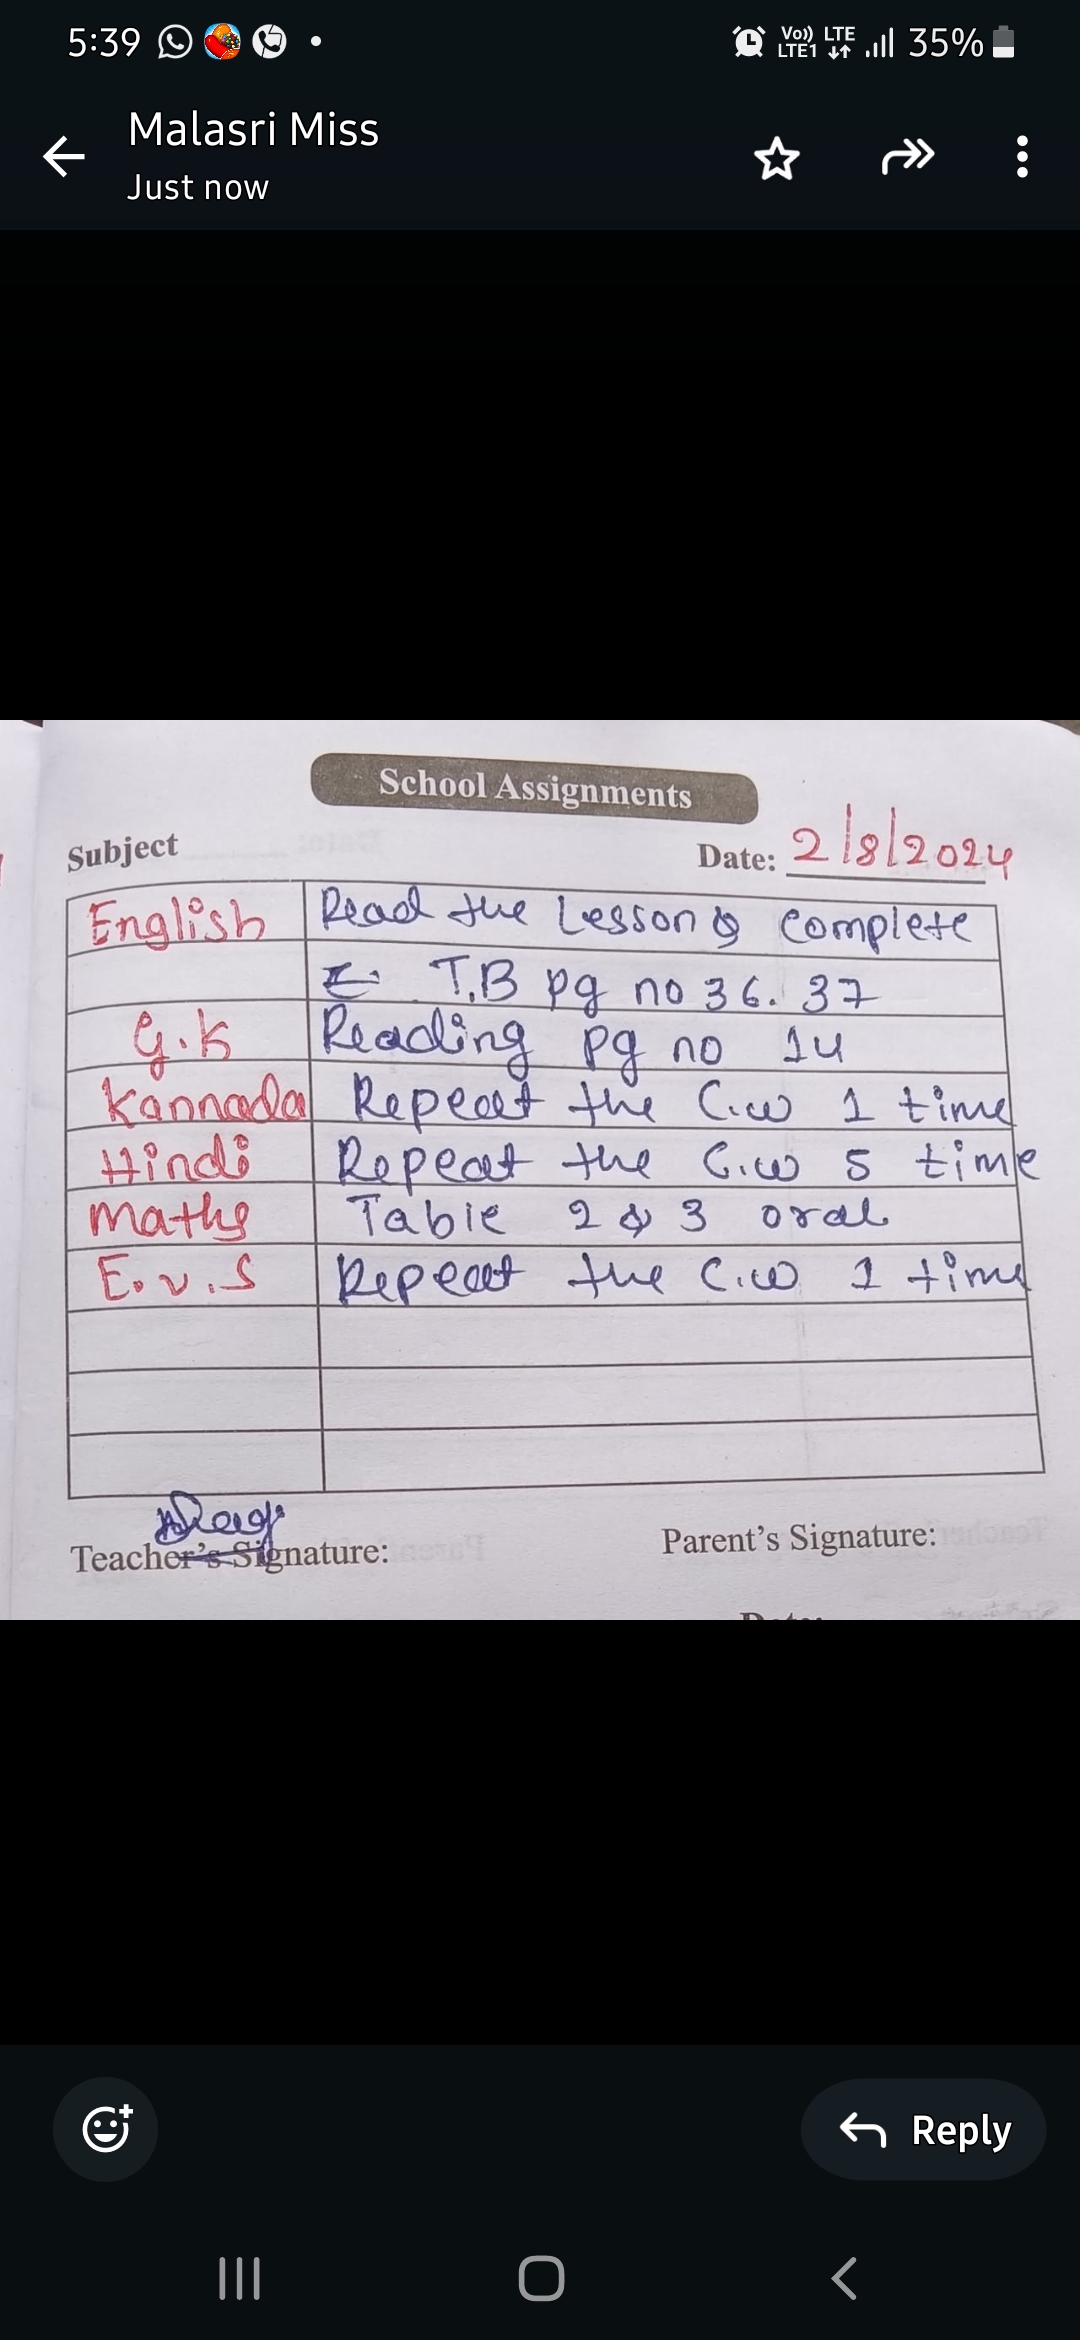 5:39
Vo)) LTE
LTE1
35%
Malasri Miss
Just now
School Assignments
Subject
Date: 2/8/2024
English Read the Lesson & complete
T.B pg no 36. 37
G.K Reading pg no 14
Kannada Repeat the C.w 1 time
Hindi Repeat the C.w 5 time
Maths Table 2 & 3 oral
E.v.S Repeat the C.w 1 time
Teacher's Signature:
Parent's Signature:
Date:
Reply